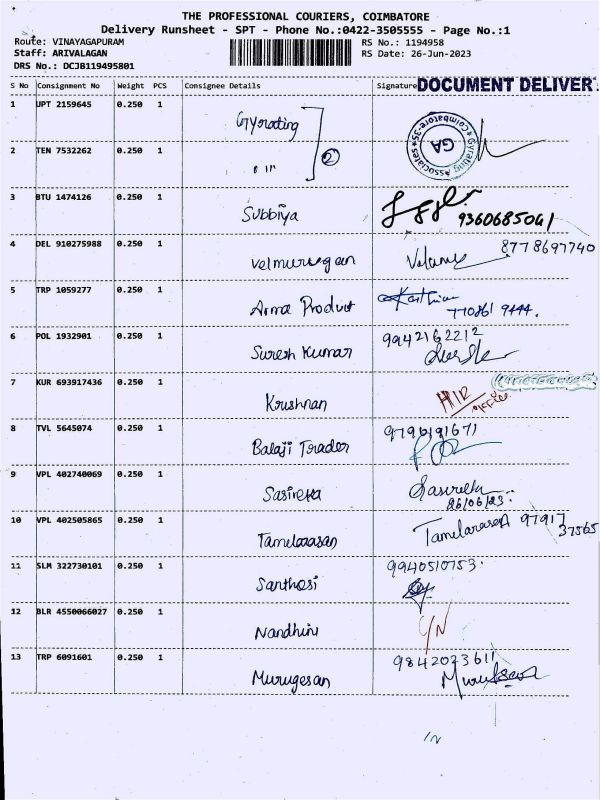 THE PROFESSIONAL COURIERS, COIMBATORE
Delivery Runsheet - SPT - Phone No.:0422-3505555 - Page No.:1
Route: VINAYAGAPURAM RS No.: 1194958
Staff: ARIVALAGAN RS Date: 26-Jun-2023
DRS No.: DCJB119495801
S No Consignment No Weight PCS Consignee Details Signature DOCUMENT DELIVER
1 UPT 2159645 0.250 1 Gyrating
Gyrating Associates * Coimbatore-35 * GA
2 TEN 7532262 0.250 1 " 2
3 BTU 1474126 0.250 1 Subbiya 9360685041
4 DEL 910275988 0.250 1 Velmurugan 8778697740
5 TRP 1059277 0.250 1 Arma Product Karthi
770861 9444.
6 POL 1932901 0.250 1 Suresh Kumar 9942162212
7 KUR 693917436 0.250 1 Krushnan
8 TVL 5645074 0.250 1 Balaji Trader 9796191671
9 VPL 402740069 0.250 1 Sasireka Sasireka
26/06/23.
10 VPL 402505865 0.250 1 Tamilarasan Tamelarasan 97917
37565
11 SLM 322730101 0.250 1 Santhosi 9940510753.
12 BLR 4550066027 0.250 1 Nandhini
13 TRP 6091601 0.250 1 Murugesan 9842023611
Murukesan